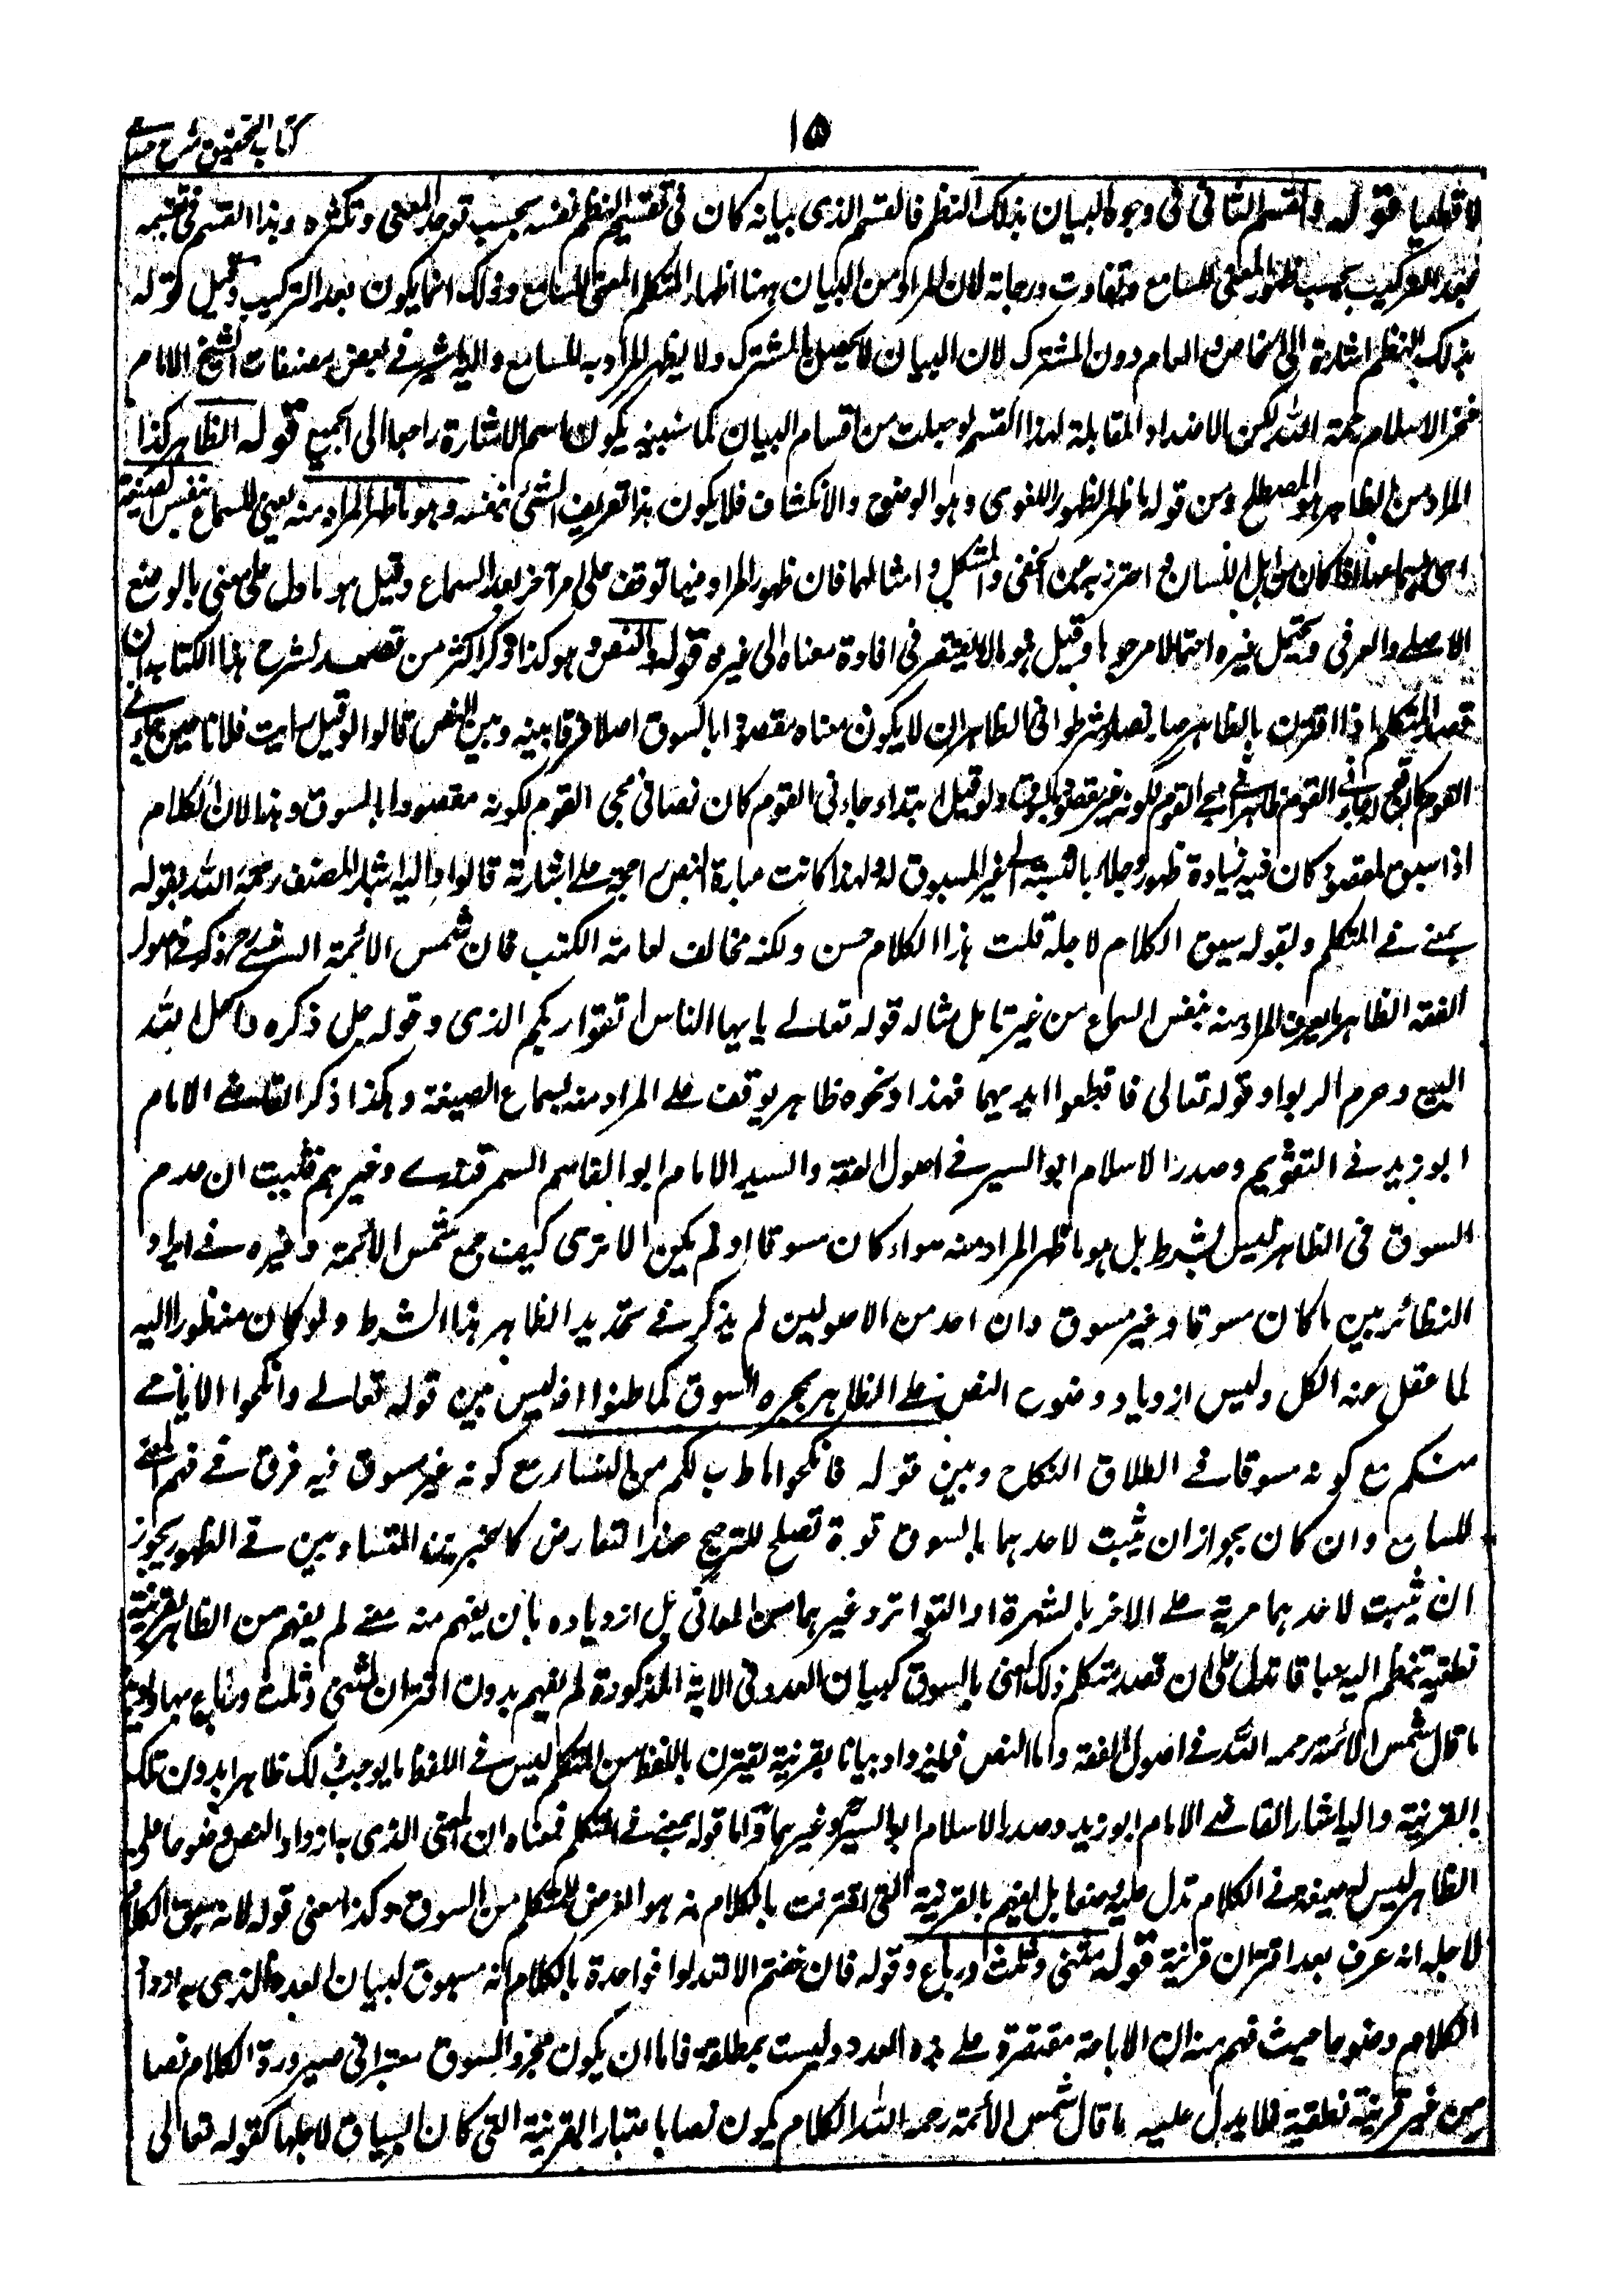 ١٥
كتاب التحقيق شرح حسامى
لا قطعيا قوله والقسم الثانى فى وجوه البيان بذلك النظم فالقسم الذى بيانه كان فى تقسيم النظم نفسه بحسب توحد المعنى وتكثره وهذا القسم فى تقسيمه
بعد التركيب بحسب ظهور المعنى للسامع وتفاوت درجاته لان المراد من البيان ههنا اظهار المتكلم المعنى للسامع وذلك انما يكون بعد التركيب وقيل قوله
بذلك النظم اشارة الى الخاص والعام دون المشترك لان البيان لا يحصل بالمشترك ولا يظهر المراد به للسامع واليه اشير فى بعض مصنفات الشيخ الامام
فخر الاسلام رحمة الله لكن الاضداد المقابلة لهذا القسم لو جعلت من اقسام البيان كما سنبينه يكون اسم الاشارة راجعا الى الجميع قوله الظاهر كذا
المراد من الظاهر هو المصطلح ومن قوله ما ظهر الظهور اللغوى وهو الوضوح والانكشاف فلا يكون هذا تعريف الشئ بنفسه وهو ما ظهر المراد منه يعنى للسامع بنفس الصيغة
اى بسماعها اذا كان من اهل اللسان احترز به عن الخفى والمشكل وامثالهما فان ظهور المراد فيها توقف على امر آخر بعد السماع وقيل هو ما دل على معنى بالوضع
الاصلى والعرفى ويحتمل غيره احتمالا مرجوحا وقيل هو ما لا يفتقر فى افادة معناه الى غيره قوله والنص وهو كذا ذكر اكثر من تصدى لشرح هذا الكتاب ان
قصد المتكلم اذا اقترن بالظاهر صار نصا وشرطوا فى الظاهر ان لا يكون معناه مقصودا بالسوق اصلا فرقا بينه وبين النص قالوا لو قيل رأيت فلانا حين جاءنى
القوم كان قوله جاءنى القوم ظاهرا فى مجئ القوم لكونه غير مقصود بالسوق ولو قيل ابتداء جاءنى القوم كان نصا فى مجئ القوم لكونه مقصودا بالسوق وهذا لان الكلام
اذا سيق لمقصود كان فيه زيادة ظهور وجلاء بالنسبة الى غير المسوق له ولهذا كانت عبارة النص راجحة على اشارته قالوا واليه اشار المصنف رحمة الله بقوله
بمعنى فى المتكلم وبقوله سيق الكلام لاجله قلت هذا الكلام حسن ولكنه مخالف لعامة الكتب فان شمس الائمة السرخسى رح ذكر فى اصول
الفقه الظاهر ما يعرف المراد منه بنفس السماع من غير تامل مثاله قوله تعالى يايها الناس اتقوا ربكم الذى وقوله جل ذكره واحل الله
البيع وحرم الربوا وقوله تعالى فاقطعوا ايديهما فهذا ونحوه ظاهر يوقف على المراد منه بسماع الصيغة وهكذا ذكر القاضى الامام
ابو زيد فى التقويم وصدر الاسلام ابو اليسر فى اصول الفقه والسيد الامام ابو القاسم السمرقندى وغيرهم فثبت ان عدم
السوق فى الظاهر ليس بشرط بل هو ما ظهر المراد منه سواء كان مسوقا او لم يكن الا ترى كيف جمع شمس الائمة وغيره فى ايراد
النظائر بين ما كان مسوقا وغير مسوق وان احد من الاصوليين لم يذكر فى تحديد الظاهر هذا الشرط ولو كان منظورا اليه
لما غفل عنه الكل وليس ازدياد وضوح النص على الظاهر بمجرد السوق كما ظنوا اذ ليس بين قوله تعالى وانكحوا الايامى
منكم مع كونه مسوقا فى اطلاق النكاح وبين قوله فانكحوا ما طاب لكم من النساء مع كونه غير مسوق فيه فرق فى فهم المعنى
للسامع وان كان يجوز ان يثبت لاحدهما بالسوق قوة تصلح للترجيح عند التعارض كالخبرين المتساويين فى الظهور يجوز
ان يثبت لاحدهما مزية على الاخر بالشهرة او التواتر وغيرهما من المعانى بل ازدياده بان يفهم منه معنى لم يفهم من الظاهر بقرينة
نطقية تنظم اليه سباقا تدل على ان قصد المتكلم ذلك المعنى بالسوق كبيان العدد فى الاية المذكورة لم يفهم بدون اقتران مثنى وثلث ورباع بها واليه
ما قال شمس الائمة رحمه الله فى اصول الفقه واما النص فما يزداد بيانا بقرينة تقترن باللفظ من المتكلم ليس فى اللفظ ما يوجب ذلك ظاهرا بدون تلك
القرينة واليه اشار القاضى الامام ابو زيد وصدر الاسلام ابو اليسر وغيرهما واما قوله بمعنى فى المتكلم فمعناه ان المعنى الذى به ازداد النص وضوحا على
الظاهر ليس له صيغة فى الكلام تدل عليه وضعا بل يفهم بالقرينة التى اقترنت بالكلام انه هو الغرض للمتكلم من السوق وكذا معنى قوله لانه سيق الكلام
لاجله انه عرف بعد اقتران قرينة قوله مثنى وثلث ورباع وقوله فان خفتم الا تعدلوا فواحدة بالكلام انه مسوق لبيان العدد الذى به ازداد
الكلام وضوحا حيث فهم منه ان الاباحة مقتصرة على هذه العدد وليست بمطلقة فاما ان يكون مجرد السوق معتبرا فى صيرورة الكلام نصا
من غير قرينة نطقية فلا يدل عليه ما قال شمس الائمة رحمه الله الكلام يكون نصا باعتبار القرينة التى كان السياق لاجلها كقوله تعالى